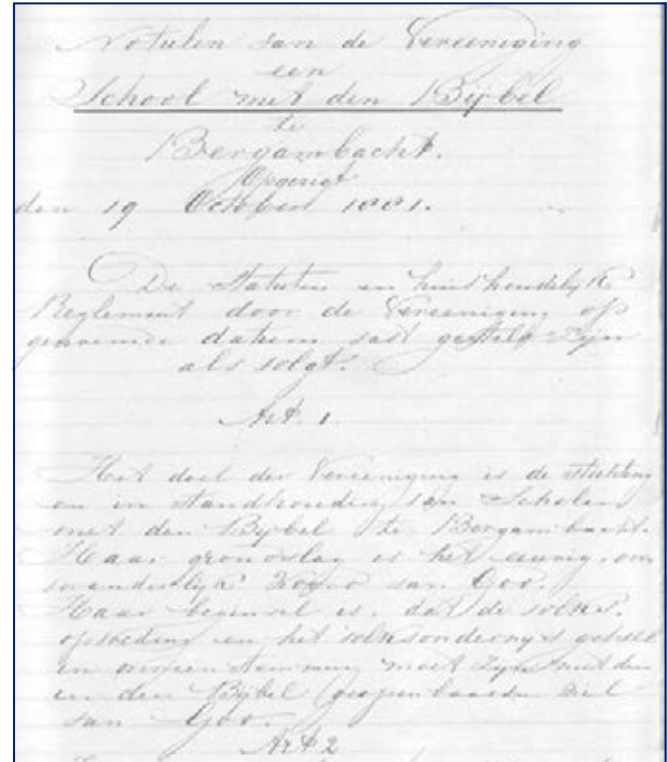 Notulen van de Vereeniging
een
School met den Bijbel
te
Bergambacht.
Opgerigt
den 19 October 1881.
De Statuten en huishoudelijk
Reglement door de Vereeniging op
genoemde datum vast gesteld zijn
als volgt.
Art. 1.
Het doel der Vereeniging is de stichting
en in standhouding van Scholen
met den Bijbel te Bergambacht.
Haar grondslag is het eeuwig, on
veranderlijk Woord van God.
Haar beginsel is, dat de volks
opvoeding en het volksonderwys geheel
in overeenstemming moet zijn met den
in den Bijbel geopenbaarden wil
van God.
Art 2